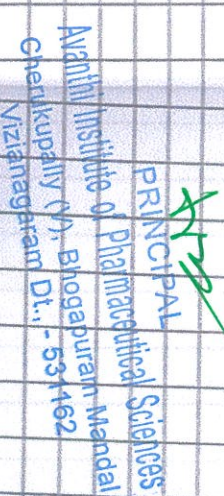 PRINCIPAL
Avanthi Institute of Pharmaceutical Sciences
Cherukupally (V), Bhogapuram Mandal
Vizianagaram Dt., - 531162